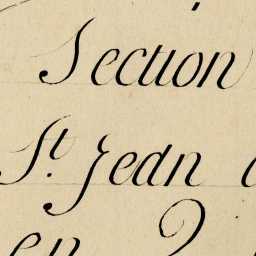 Section
St. Jean
en 2